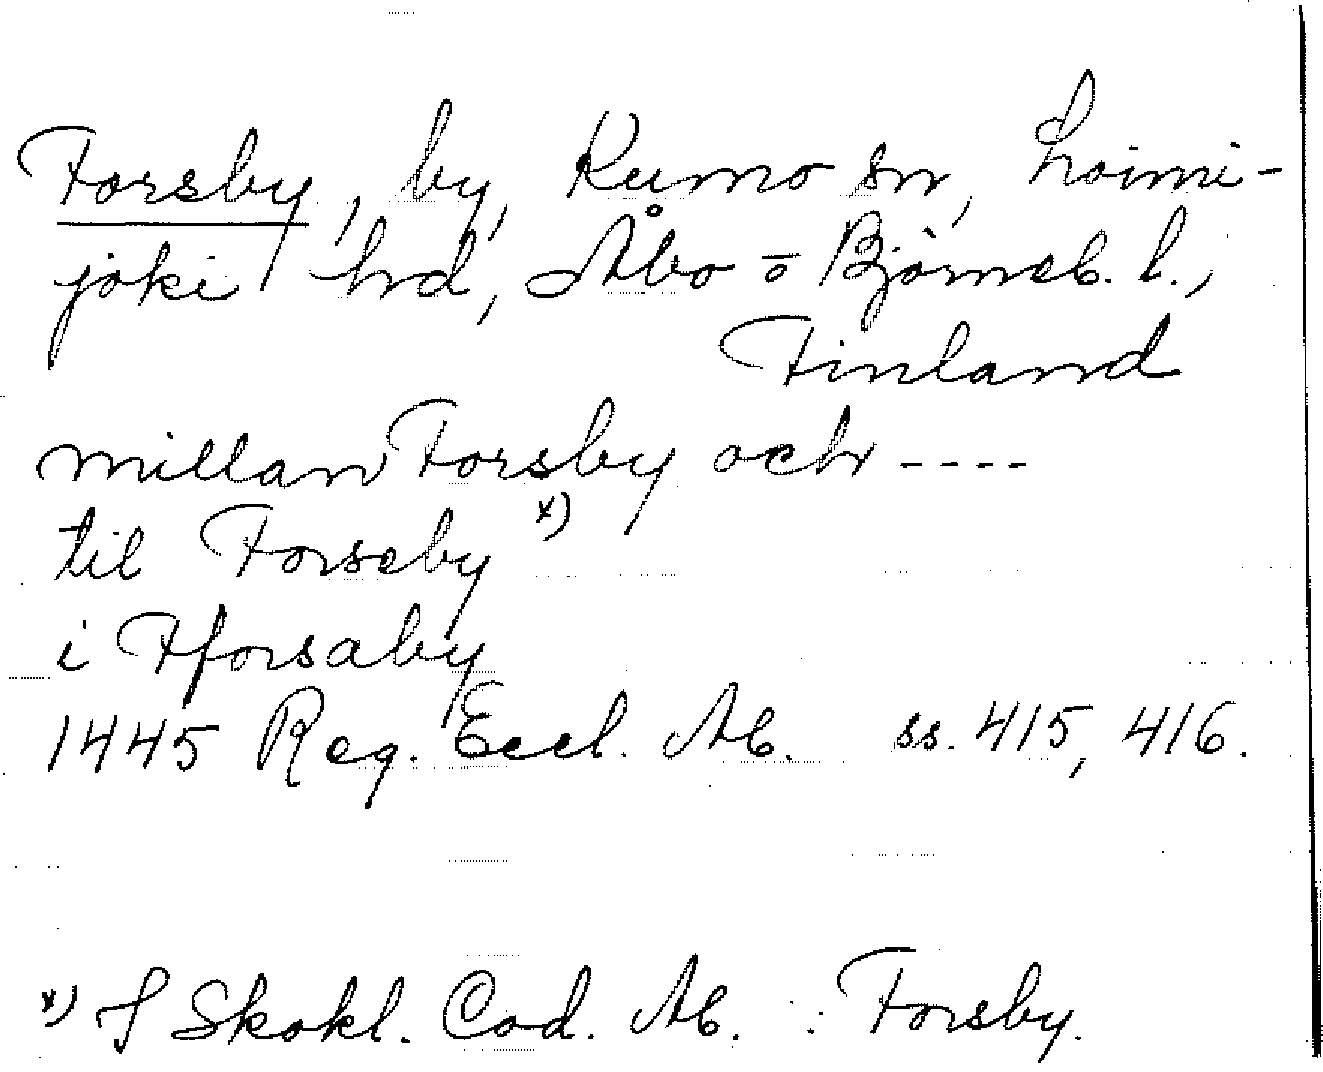 Forsby, by, Kumo sn, Loimi-
joki hd, Åbo-o Björneb. l.,
Finland
millan Forsby och ----
til Forseby x)
i Fforsaby
1445 Reg. Eccl. Ab. ss. 415, 416.
x) I Skokl. Cod. Ab. : Forsby.